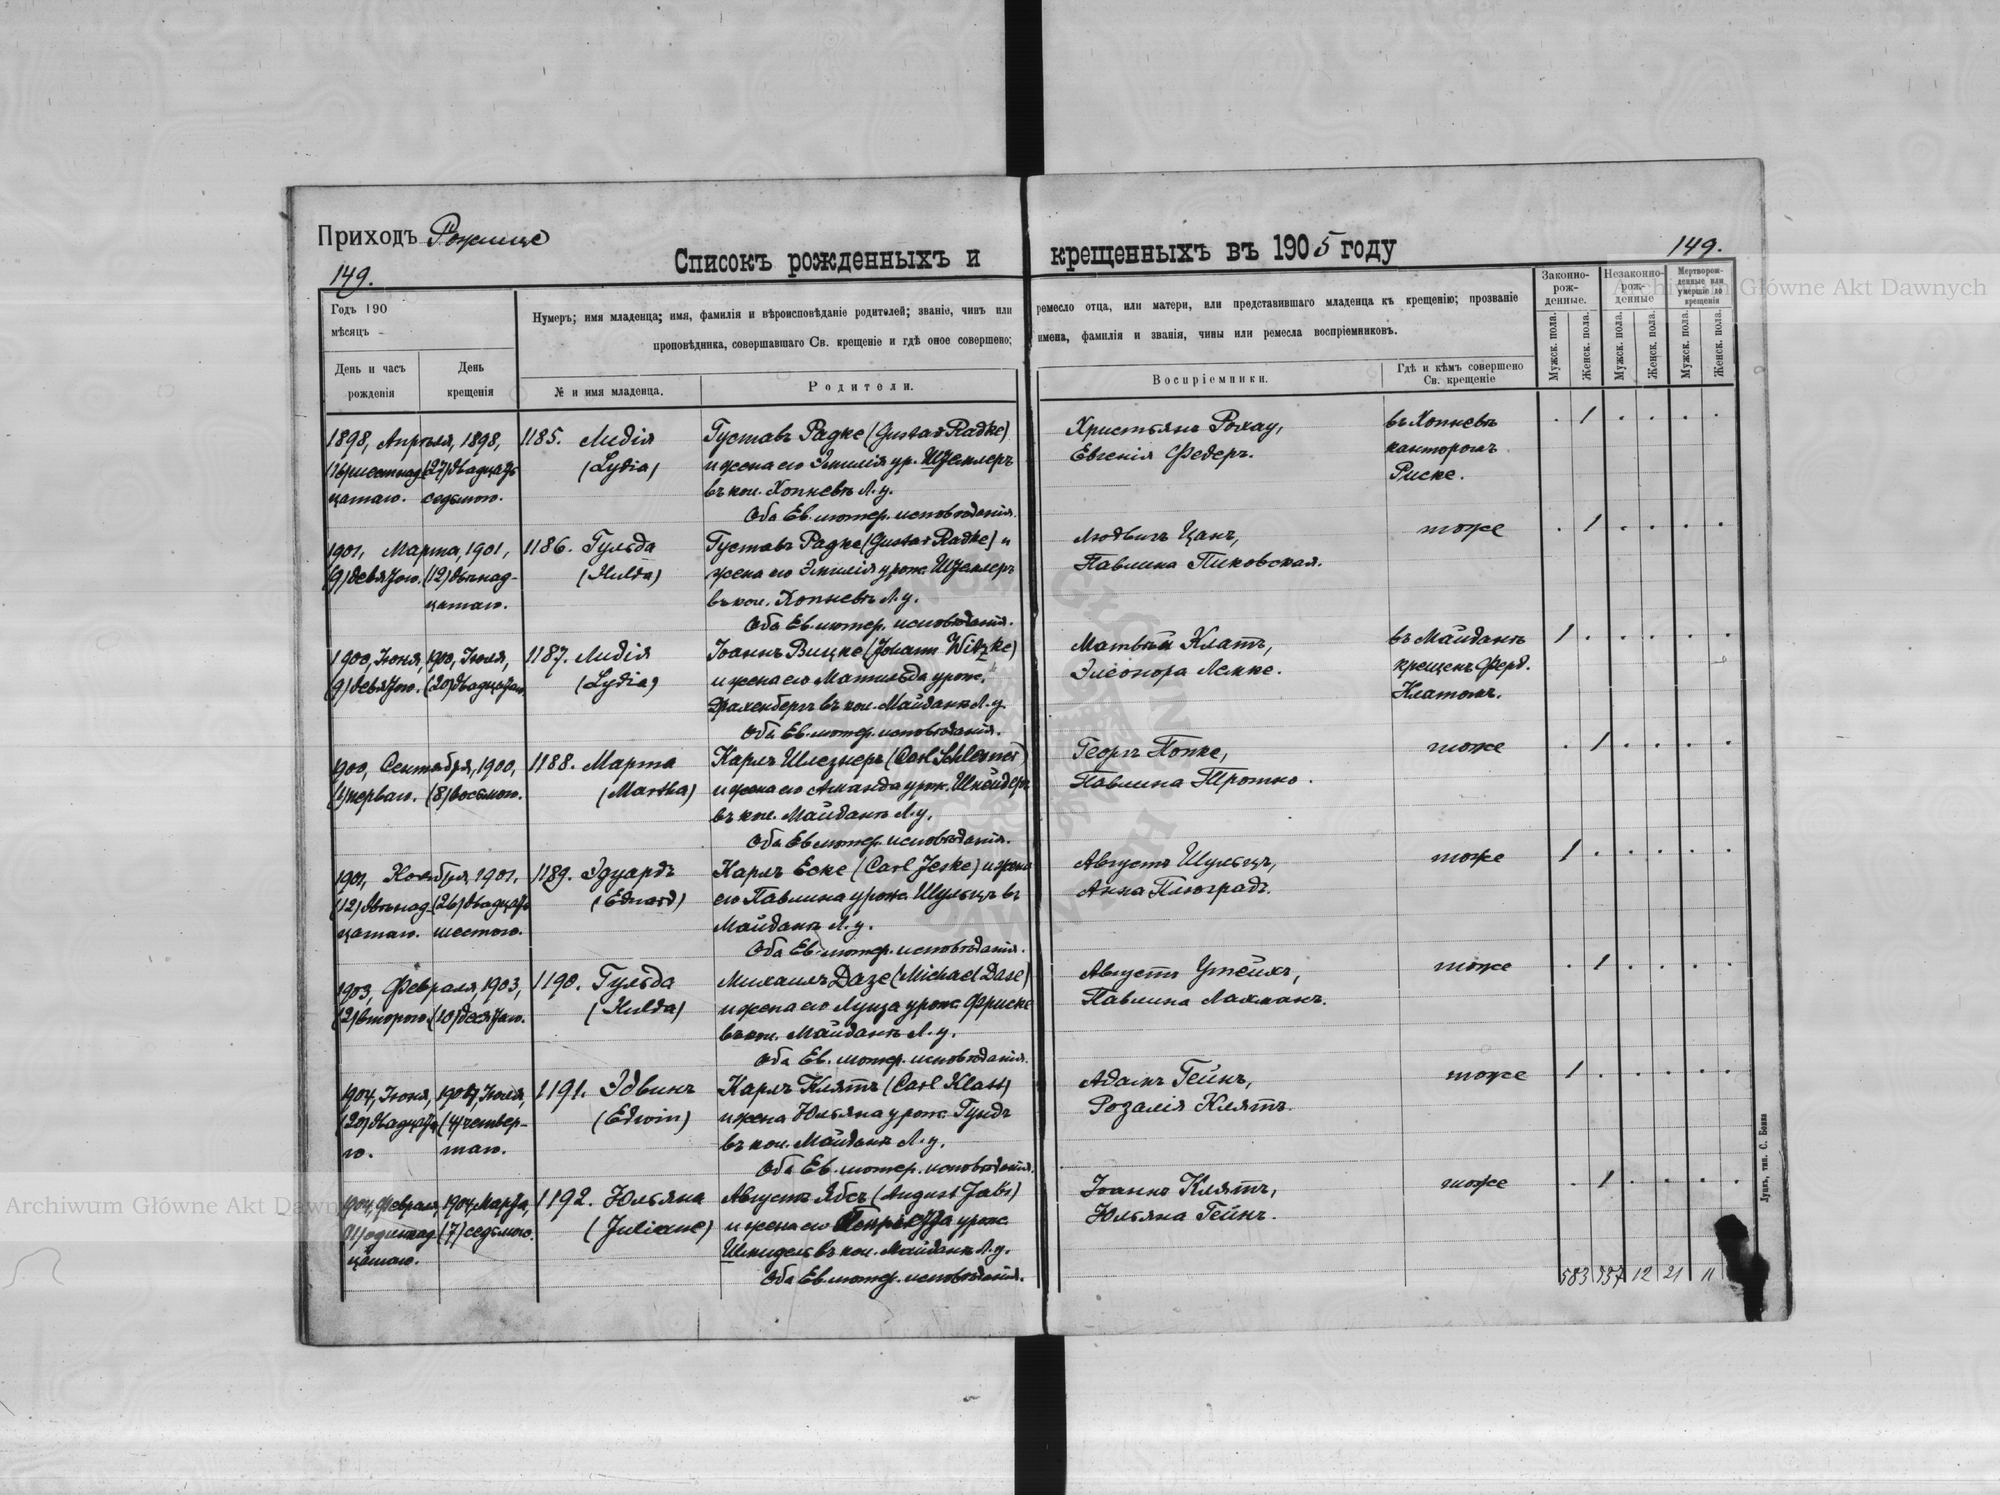 Приходъ Рожище
Списокъ рожденныхъ и крещенныхъ въ 1905 году
149.
149.
Годъ 190
мѣсяцъ -
День и часъ рожденія
День крещенія
Нумеръ; имя младенца; имя, фамилія и вѣроисповѣданіе родителей; званіе, чинъ или ремесло отца, или матери, или представившаго младенца къ крещенію; прозваніе
проповѣдника, совершавшаго Св. крещеніе и гдѣ оное совершено; имена, фамилія и званія, чины или ремесла воспріемниковъ.
№ и имя младенца.
Родители.
Воспріемники.
Гдѣ и кѣмъ совершено Св. крещеніе
Законно-рож-денные.
Незаконно-рож-денные
Мертворож-денные или умершіе до крещенія
Мужск. пола.
Женск. пола.
Мужск. пола.
Женск. пола.
Мужск. пола.
Женск. пола.
1898, Апрѣля, 1898, 1185. Лидія Густавъ Радке (Gustav Radke) Христьянъ Рохау, въ Копневѣ . 1 . . . .
(16) шестнад- (27) двадцать (Lydia) и жена его Эмилія ур. Евгенія Федеръ. канторомъ
цатаго. седьмого. въ кол. Копневѣ Л. у. Риске.
Оба Ев. лютер. исповѣданія.
1901, Марта, 1901, 1186. Гульда Густавъ Радке (Gustav Radke) и Людвигъ Цанъ, тоже . 1 . . . .
(9) девятого. (12) двѣнад- (Hulda) жена его Эмилія урож. Павлина Пиковская.
цатаго. въ кол. Копневѣ Л. у.
Оба Ев. лютер. исповѣданія.
1900, Іюня, 1900, Іюля, 1187. Лидія Іоаннъ Вицке (Johann Witzke) Матвѣй Клатъ, въ Майданѣ 1 . . . . .
(9) девятого. (20) двадцатаго. (Lydia) и жена его Матильда урож. Элеонора Лемке. крещенъ Ферд.
въ кол. Майданѣ Л. у. Клатомъ.
Оба Ев. лютер. исповѣданія.
1900, Сентября, 1900, 1188. Марта Карлъ Шлезнеръ (Carl Schlesner) Георгъ Попке, тоже . 1 . . . .
(1) перваго. (8) восьмого. (Martha) и жена его Аманда урож. Шнейдеръ Павлина
въ кол. Майданѣ Л. у.
Оба Ев. лютер. исповѣданія.
1901, Ноября, 1901, 1189. Эдуардъ Карлъ Еске (Carl Jeske) и жена Августъ Шульцъ, тоже 1 . . . . .
(12) двѣнад- (26) двадцать (Eduard) его Павлина урож. Шульцъ въ Анна
цатаго. шестого. Майданѣ Л. у.
Оба Ев. лютер. исповѣданія.
1903, Февраля, 1903, 1190. Гульда Михаилъ Дазе (Michael Dase) Августъ тоже . 1 . . . .
(2) второго. (10) десятаго. (Hulda) и жена его Луиза урож. Фриске Павлина Лахманъ.
въ кол. Майданѣ Л. у.
Оба Ев. лютер. исповѣданія.
1904, Іюня, 1904, Іюля, 1191. Эдвинъ Карлъ Клятъ (Carl Klatt) Адамъ Гейнъ, тоже 1 . . . . .
(20) двадцата- (4) четвер- (Edwin) и жена Юльяна урож. Гундъ Розалія Клятъ.
го. таго. въ кол. Майданѣ Л. у.
Оба Ев. лютер. исповѣданія.
1904, Февраля, 1904, Марта, 1192. Юльяна Августъ Ябсъ (August Jabs) Іоаннъ Клятъ, тоже . 1 . . . .
(11) одиннад- (7) седьмого. (Juliane) и жена его урож. Юльяна Гейнъ.
цатаго. въ кол. Майданѣ Л. у.
Оба Ев. лютер. исповѣданія.
583 557 12 21 11
Луцкъ, тип. С. Бонка
Archiwum Główne Akt Dawnych
Archiwum Główne Akt Dawnych